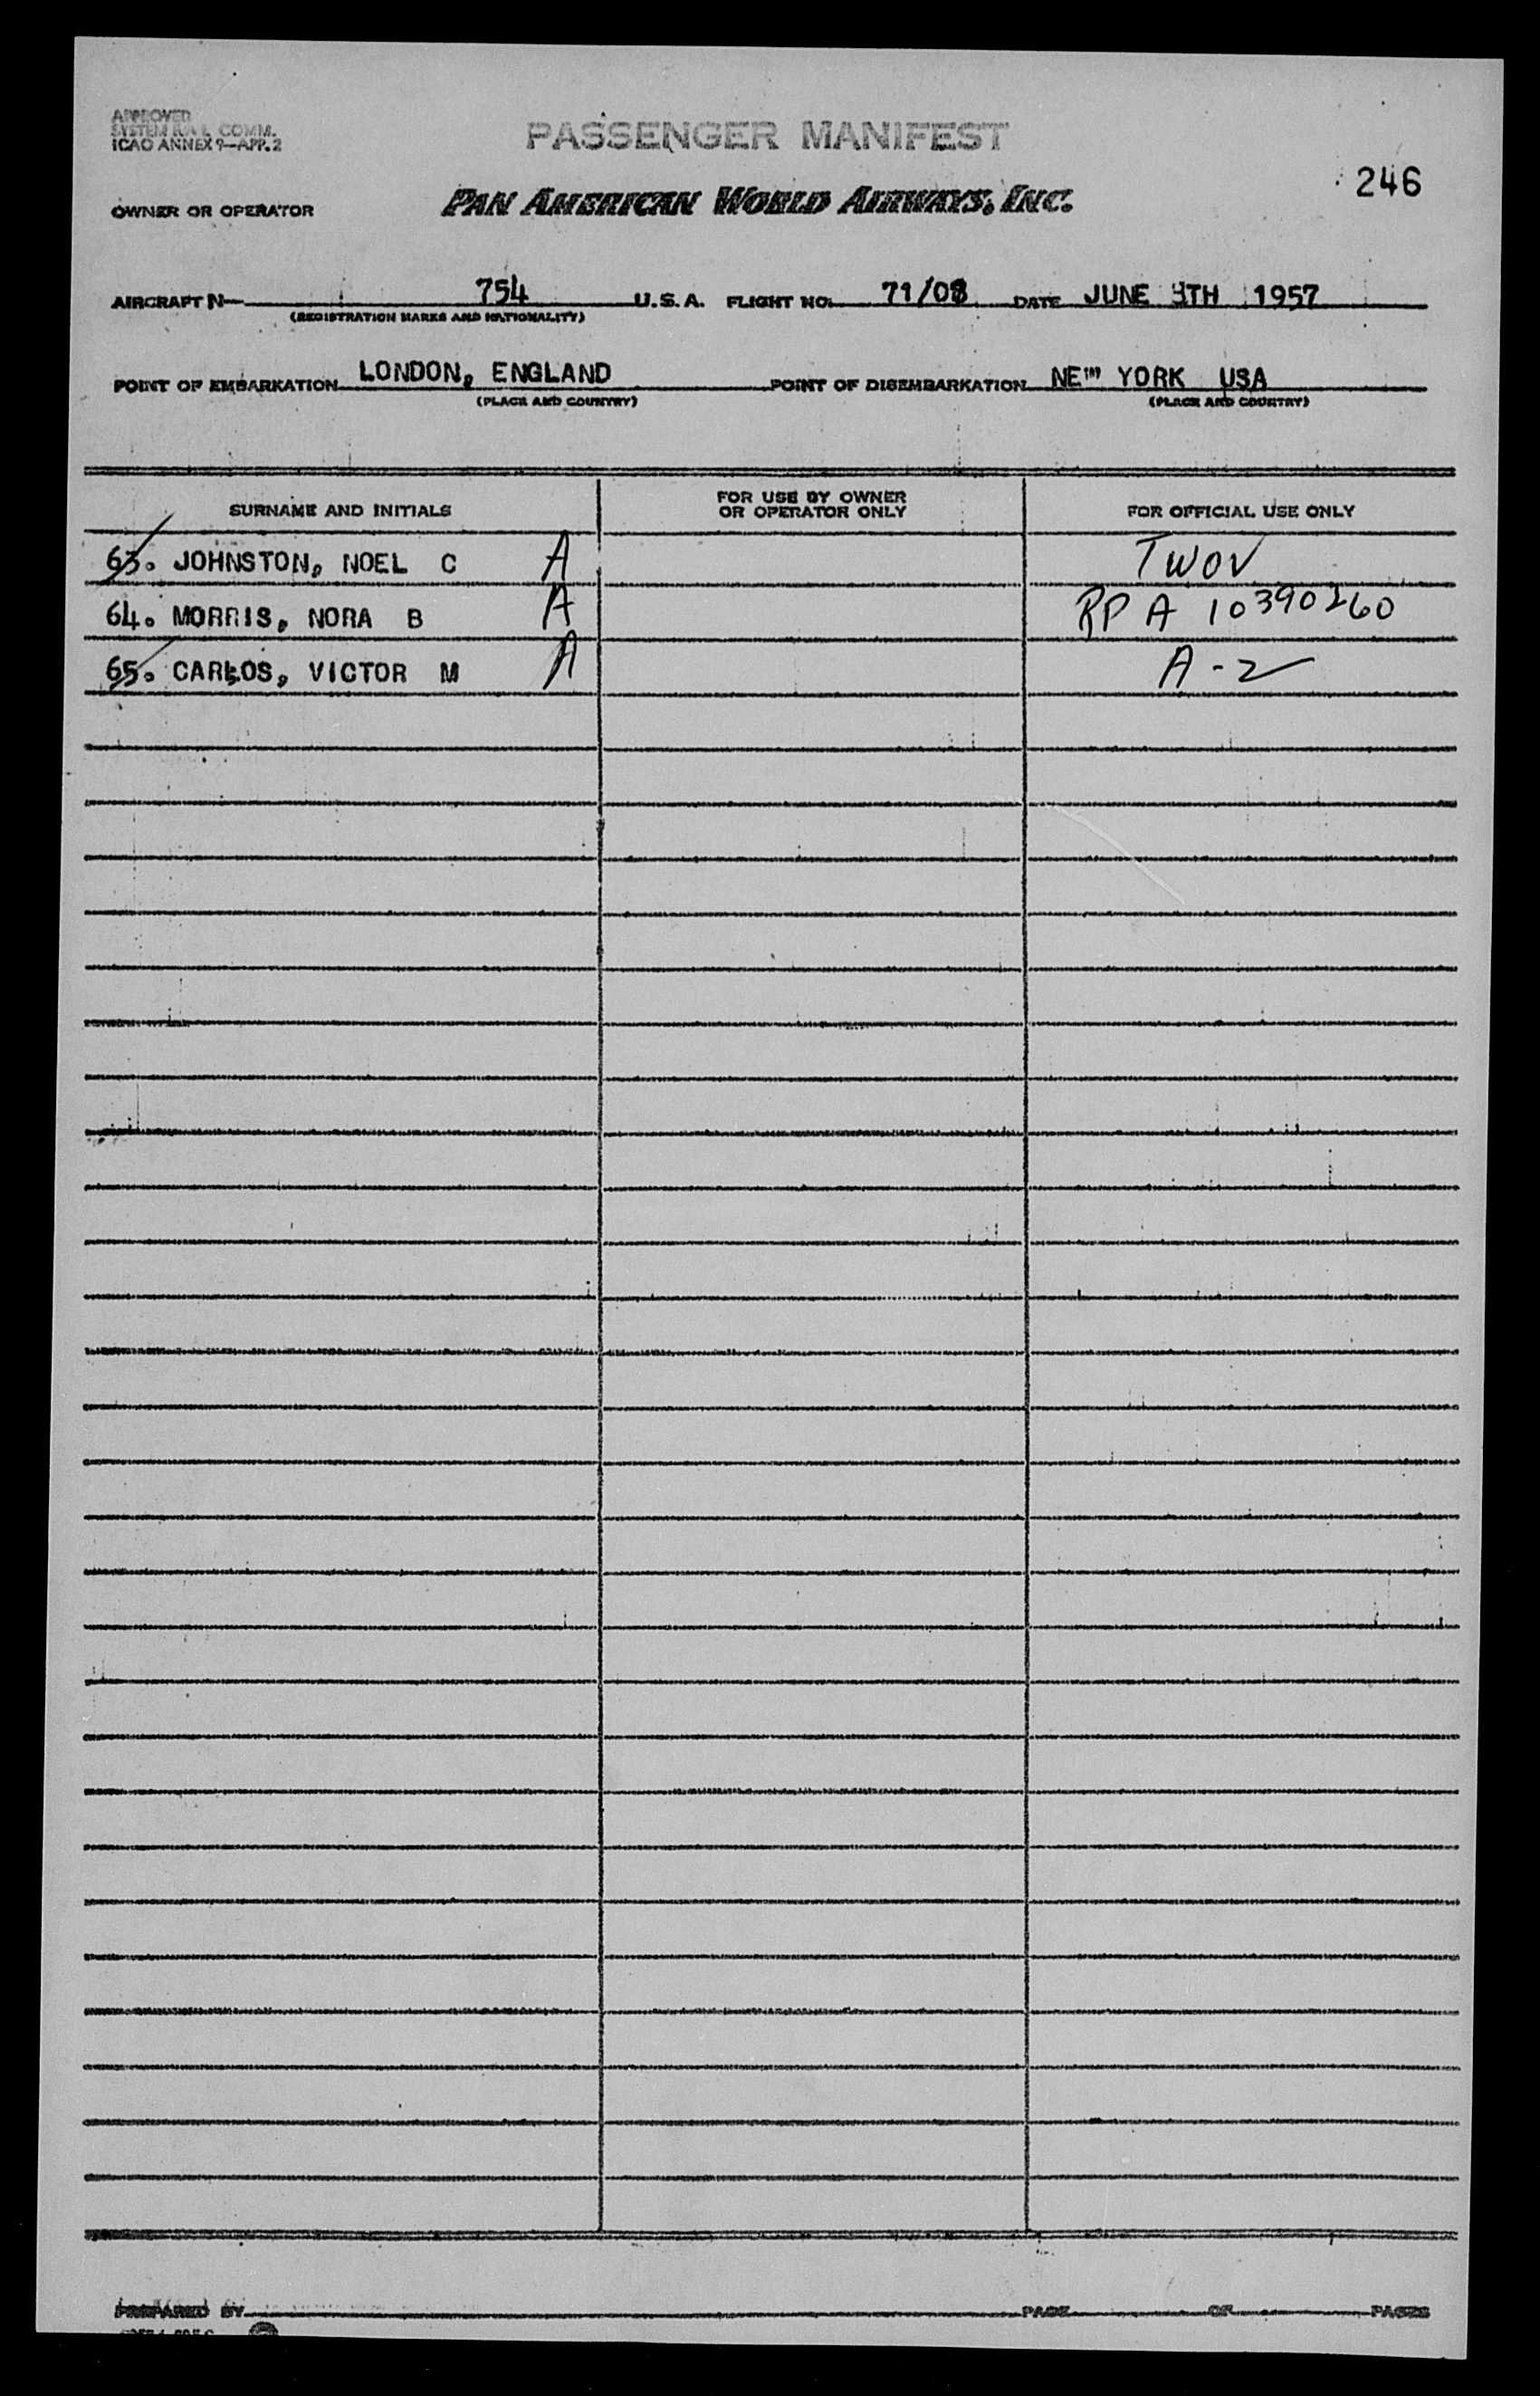 APPROVED
SYSTEM COMM.
ICAO ANNEX 9—APP. 2
PASSENGER MANIFEST
246
OWNER OR OPERATOR PAN AMERICAN WORLD AIRWAYS, INC.
AIRCRAFT N— 754 U.S.A. FLIGHT NO. 71/08 DATE JUNE 9TH 1957
(REGISTRATION MARKS AND NATIONALITY)
POINT OF EMBARKATION LONDON, ENGLAND POINT OF DISEMBARKATION NEW YORK USA
(PLACE AND COUNTRY) (PLACE AND COUNTRY)
SURNAME AND INITIALS FOR USE BY OWNER OR OPERATOR ONLY FOR OFFICIAL USE ONLY
63. JOHNSTON, NOEL C A TWOV
64. MORRIS, NORA B A RP A 10390260
65. CARLOS, VICTOR M A A-2
PREPARED BY PAGE OF PAGES